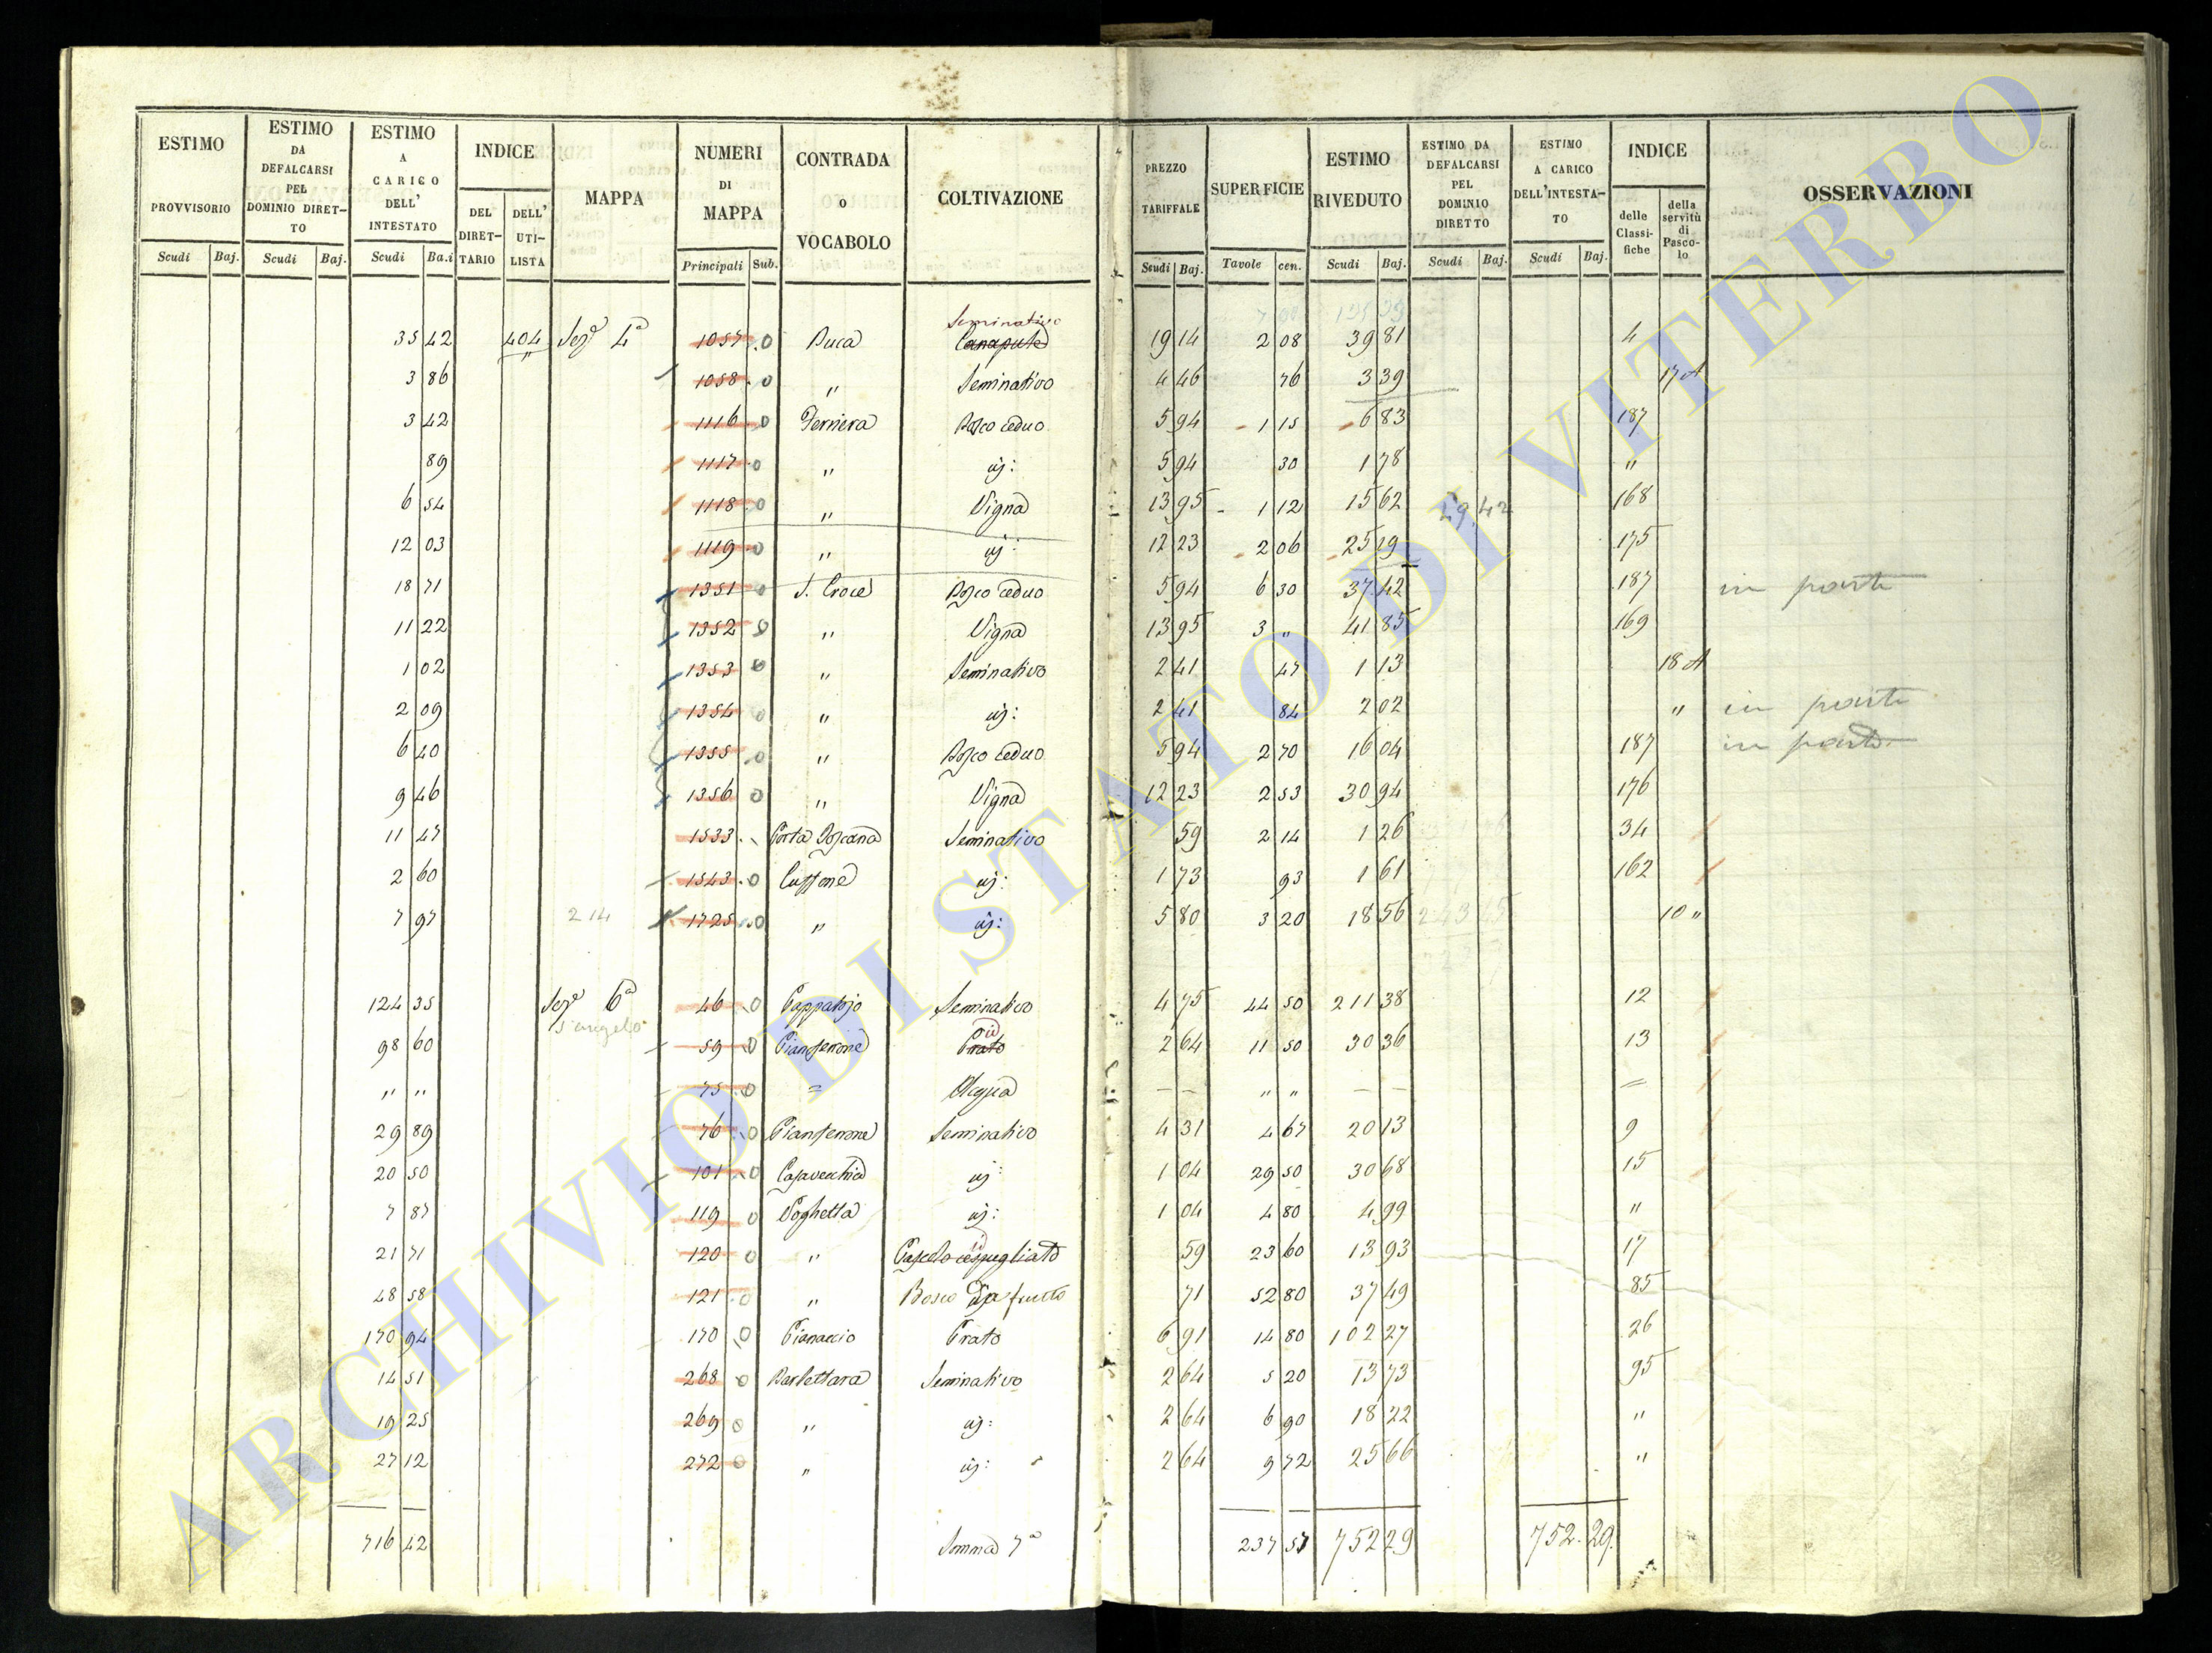 ESTIMO PROVVISORIO Scudi Baj.
ESTIMO DA DEFALCARSI PEL DOMINIO DIRET-TO Scudi Baj.
ESTIMO A CARICO DELL' INTESTATO Scudi Ba.i
INDICE DEL DIRET-TARIO DELL' UTI-LISTA
MAPPA
NUMERI DI MAPPA Principali Sub.
CONTRADA O VOCABOLO
COLTIVAZIONE
PREZZO TARIFFALE Scudi Baj.
SUPERFICIE Tavole cen.
ESTIMO RIVEDUTO Scudi Baj.
ESTIMO DA DEFALCARSI PEL DOMINIO DIRETTO Scudi Baj.
ESTIMO A CARICO DELL'INTESTA-TO Scudi Baj.
INDICE delle Classi-fiche della servitù di Pasco-lo
OSSERVAZIONI
Seminativo
35 42 404 Sez.e 4a 1057 0 Buca 19 14 2 08 39 81 4
3 86 1058 0 " Seminativo 4 46 76 3 39 17 A
3 42 1116 0 Ferriera Bosco ceduo 5 94 1 15 6 83 187
89 1117 0 " id: 5 94 30 1 78 "
6 54 1118 0 " Vigna 13 95 1 12 15 62 49.42 168
12 03 1119 0 " id: 12 23 2 06 25 19 175
18 71 1351 0 S. Croce Bosco ceduo 5 94 6 30 37 42 187 in parte
11 22 1352 0 " Vigna 13 95 3 " 41 85 169
1 02 1353 0 " Seminativo 2 41 47 1 13 18 A
2 09 1354 0 " id: 2 41 84 2 02 " in parte
6 40 1355 0 " Bosco ceduo 5 94 2 70 16 04 187 in parte
9 46 1356 0 " Vigna 12 23 2 53 30 94 176
11 47 1533 Porta Toscana Seminativo 59 2 14 1 26 34
2 60 1543 0 id: 1 73 93 1 61 162
7 97 214 1725 0 " id: 5 80 3 20 18 56 10 "
124 35 Sez.e 6a 46 0 Seminativo 4 75 44 50 211 38 12
S. Angelo
98 60 59 0 Pianferrone Prato id 2 64 11 50 30 36 13
" " 75 0 = Acqua — — " " — — =
29 89 76 0 Pianferrone Seminativo 4 31 4 67 20 13 9
20 50 101 0 Casavecchia id: 1 04 29 50 30 68 15
7 87 119 0 Poghetta id: 1 04 4 80 4 99 "
21 71 120 0 " Pascolo cespugliato id 59 23 60 13 93 17
48 58 121 0 " Bosco da frutto 71 52 80 37 49 85
170 94 170 0 Pianaccio Prato 6 91 14 80 102 27 26
14 51 268 0 Barlettara Seminativo 2 64 5 20 13 73 95
19 25 269 0 " id: 2 64 6 90 18 22 "
27 12 272 0 " id: 2 64 9 72 25 66 "
716 42 Somma 7a 237 57 752 29 752.29.
ARCHIVIO DI STATO DI VITERBO